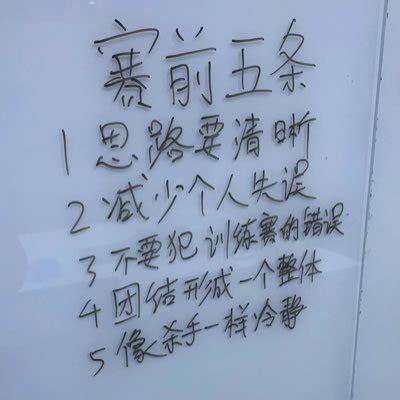 赛前五条
1 思路要清晰
2 减少个人失误
3 不要犯训练赛的错误
4 团结形成一个整体
5 像杀手一样冷静